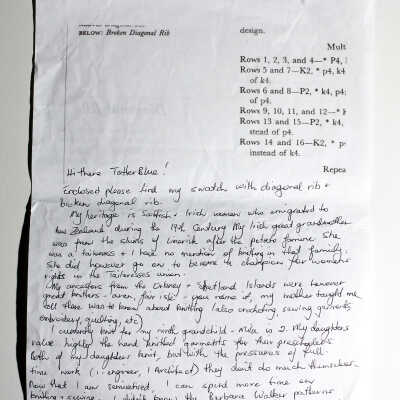 BELOW: Broken Diagonal Rib
design.
Mult
Rows 1, 2, 3, and 4—* P4,
Rows 5 and 7—K2, * p4, k4
of k4.
Rows 6 and 8—P2, * k4, p4;
of p4.
Rows 9, 10, 11, and 12—*
Rows 13 and 15—P2, * k4,
stead of p4.
Rows 14 and 16—K2, * p
instead of k4.
Repea
Hi there TatterBlue!
Enclosed please find my swatch with diagonal rib +
broken diagonal rib.
My heritage is Scottish + Irish women who emigrated to
New Zealand during the 19th Century. My Irish great grandmother
was from the slums of Limerick after the potato famine. She
was a tailoress + I have no mention of knitting in that family.
She did however go on to become a champion for womens
rights in the Tailoresses union.
My ancestors from the Orkney + Shetland Islands were however
great knitters - aran, fair isle - you name it, my mother taught me
all there was to know about knitting (also crocheting, sewing garments,
embroidery, quilting, etc)
I currently knit for my ninth grandchild - Mila is 2. My daughters
value highly the hand knitted garments for their preschoolers
Both of my daughters knit, but with the pressures of full
time work (1 engineer, 1 Architect) they don't do much themselves.
Now that I am semiretired, I can spend more time on
knitting + sewing. I didn't know the Barbara Walker patterns